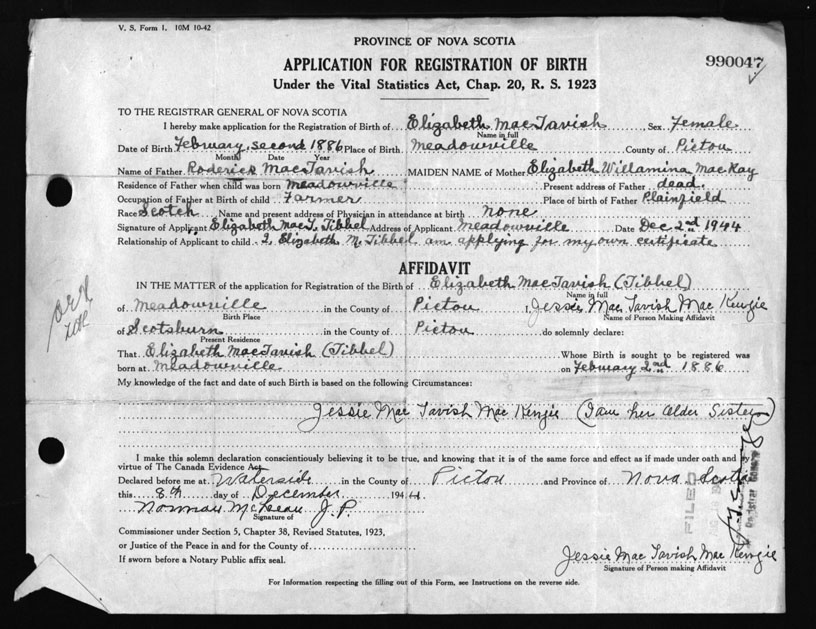 V. S. Form 1. 10M 10-42
PROVINCE OF NOVA SCOTIA
APPLICATION FOR REGISTRATION OF BIRTH
990047
Under the Vital Statistics Act, Chap. 20, R. S. 1923
TO THE REGISTRAR GENERAL OF NOVA SCOTIA
I hereby make application for the Registration of Birth of Elizabeth MacTavish, Sex Female
Name in full
Date of Birth February, second 1886 Place of Birth Meadowville County of Pictou
Month Date Year
Name of Father Roderick MacTavish MAIDEN NAME of Mother Elizabeth Willamina MacKay
Residence of Father when child was born Meadowville Present address of Father dead.
Occupation of Father at Birth of child Farmer Place of birth of Father Plainfield
Race Scotch Name and present address of Physician in attendance at birth none
Signature of Applicant Elizabeth MacT. Tibbel Address of Applicant Meadowville Date Dec 2nd 1944
Relationship of Applicant to child I, Elizabeth M. Tibbel am applying for my own certificate
AFFIDAVIT
IN THE MATTER of the application for Registration of the Birth of Elizabeth MacTavish (Tibbel)
Name in full
of Meadowville in the County of Pictou I, Jessie Mac Tavish Mac Kenzie
Birth Place Name of Person Making Affidavit
of Scotsburn in the County of Pictou do solemnly declare:
Present Residence
That Elizabeth MacTavish (Tibbel) Whose Birth is sought to be registered was
born at Meadowville on February 2nd 1886
My knowledge of the fact and date of such Birth is based on the following Circumstances:
Jessie Mac Tavish Mac Kenzie (I am her older Sister)
I make this solemn declaration conscientiously believing it to be true, and knowing that it is of the same force and effect as if made under oath and by
virtue of The Canada Evidence Act
Declared before me at Waterside in the County of Pictou and Province of Nova Scotia
this 8th day of December 1944.
Norman McLean J. P.
Signature of
Commissioner under Section 5, Chapter 38, Revised Statutes, 1923,
or Justice of the Peace in and for the County of
If sworn before a Notary Public affix seal.
Jessie Mac Tavish Mac Kenzie
Signature of Person making Affidavit
For Information respecting the filling out of this Form, see Instructions on the reverse side.
FILED